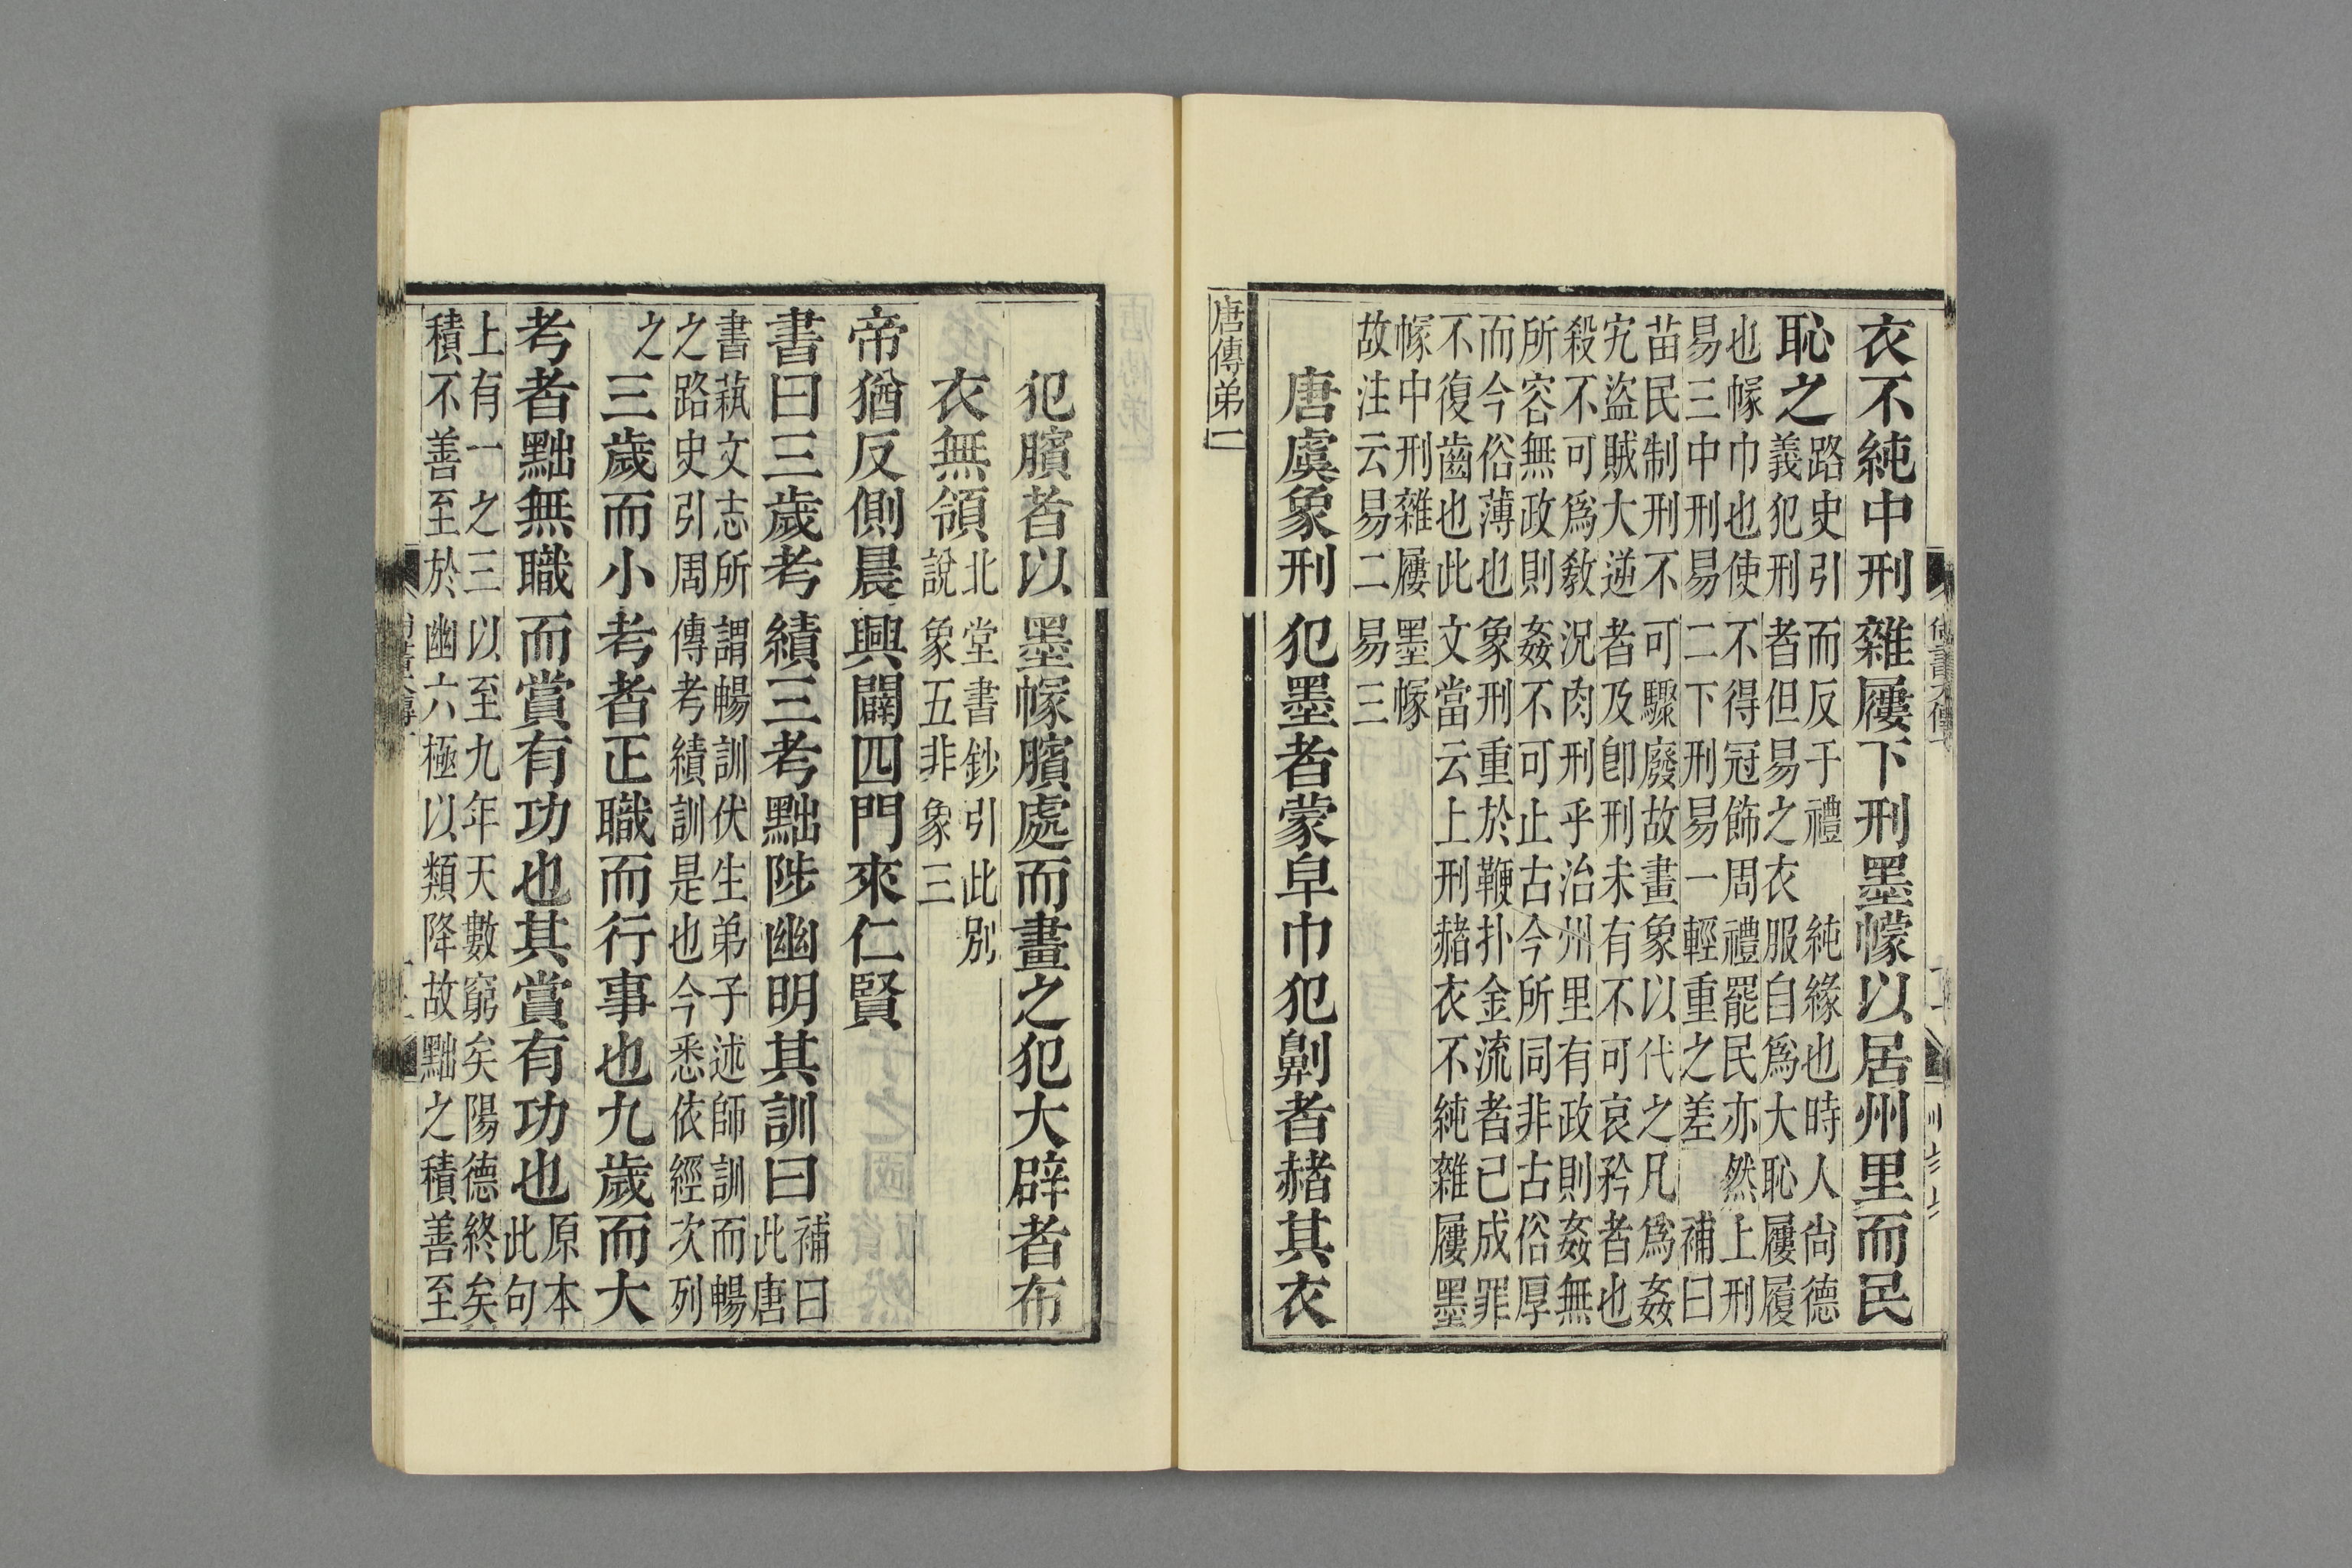 衣不純中刑雜屨下刑墨幪以居州里而民
恥之
路史引而反于禮 純緣也時人尚德
義犯刑者但易之衣服自爲大恥屨履
也幏巾也使不得冠飾周禮罷民亦然上刑
易三中刑易二下刑易一輕重之差 補曰
苗民制刑不可驟廢故畫象以代之凡爲姦
宄盜賊大逆者及卽刑未有不可哀矜者也
殺不可爲敎況肉刑乎治州里有政則姦無
所容無政則姦不可止古今所同非古俗厚
而今俗薄也象刑重於鞭扑金流者已成罪
不復齒也此文當云上刑赭衣不純雜屨墨
幏中刑雜屨墨幏
故注云易二易三
唐虞象刑犯墨者蒙皁巾犯劓者赭其衣
唐傳弟二
犯臏者以墨幏臏處而畫之犯大辟者布
衣無領
北堂書鈔引此別
說象五非象三
帝猶反側晨興闢四門來仁賢
書曰三歲考績三考黜陟幽明其訓曰
補曰
此唐
書蓺文志所謂暢訓伏生弟子述師訓而暢
之路史引周傳考績訓是也今悉依經次列
之
三歲而小考者正職而行事也九歲而大
考者黜無職而賞有功也其賞有功也
原本
此句
上有一之三以至九年天數窮矣陽德終矣
積不善至於幽六極以類降故黜之積善至